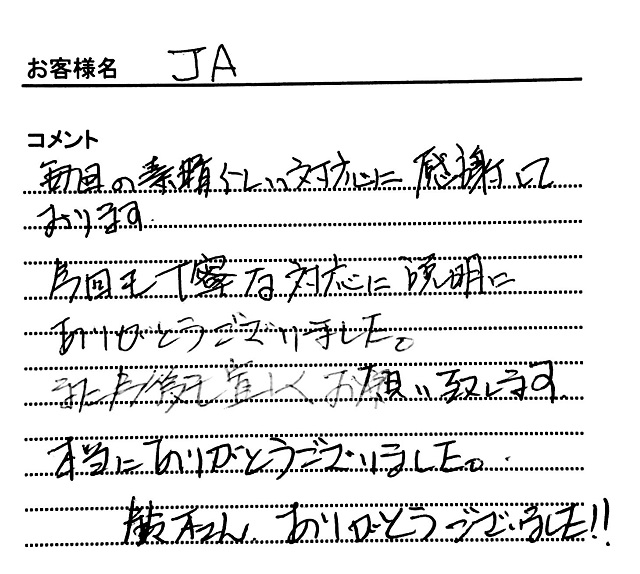 お客様名 JA
コメント
毎回の素晴らしい対応に感謝して
おります.
今回も丁寧な対応に説明に
ありがとうございました。
また今後も宜しくお願い致します.
本当にありがとうございました。
さん、ありがとうございました!!